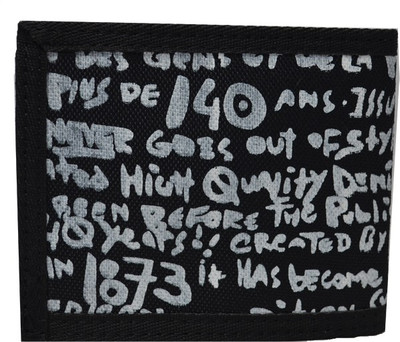 DES GENS ET DE LA
PLUS DE 140 ANS. ISSU
NEVER GOES OUT OF STY
ATED HIGH QUALITY DENI
BEEN BEFORE THE PUBLI
40 YEARS!! CREATED BY
IN 1873 it HAS become